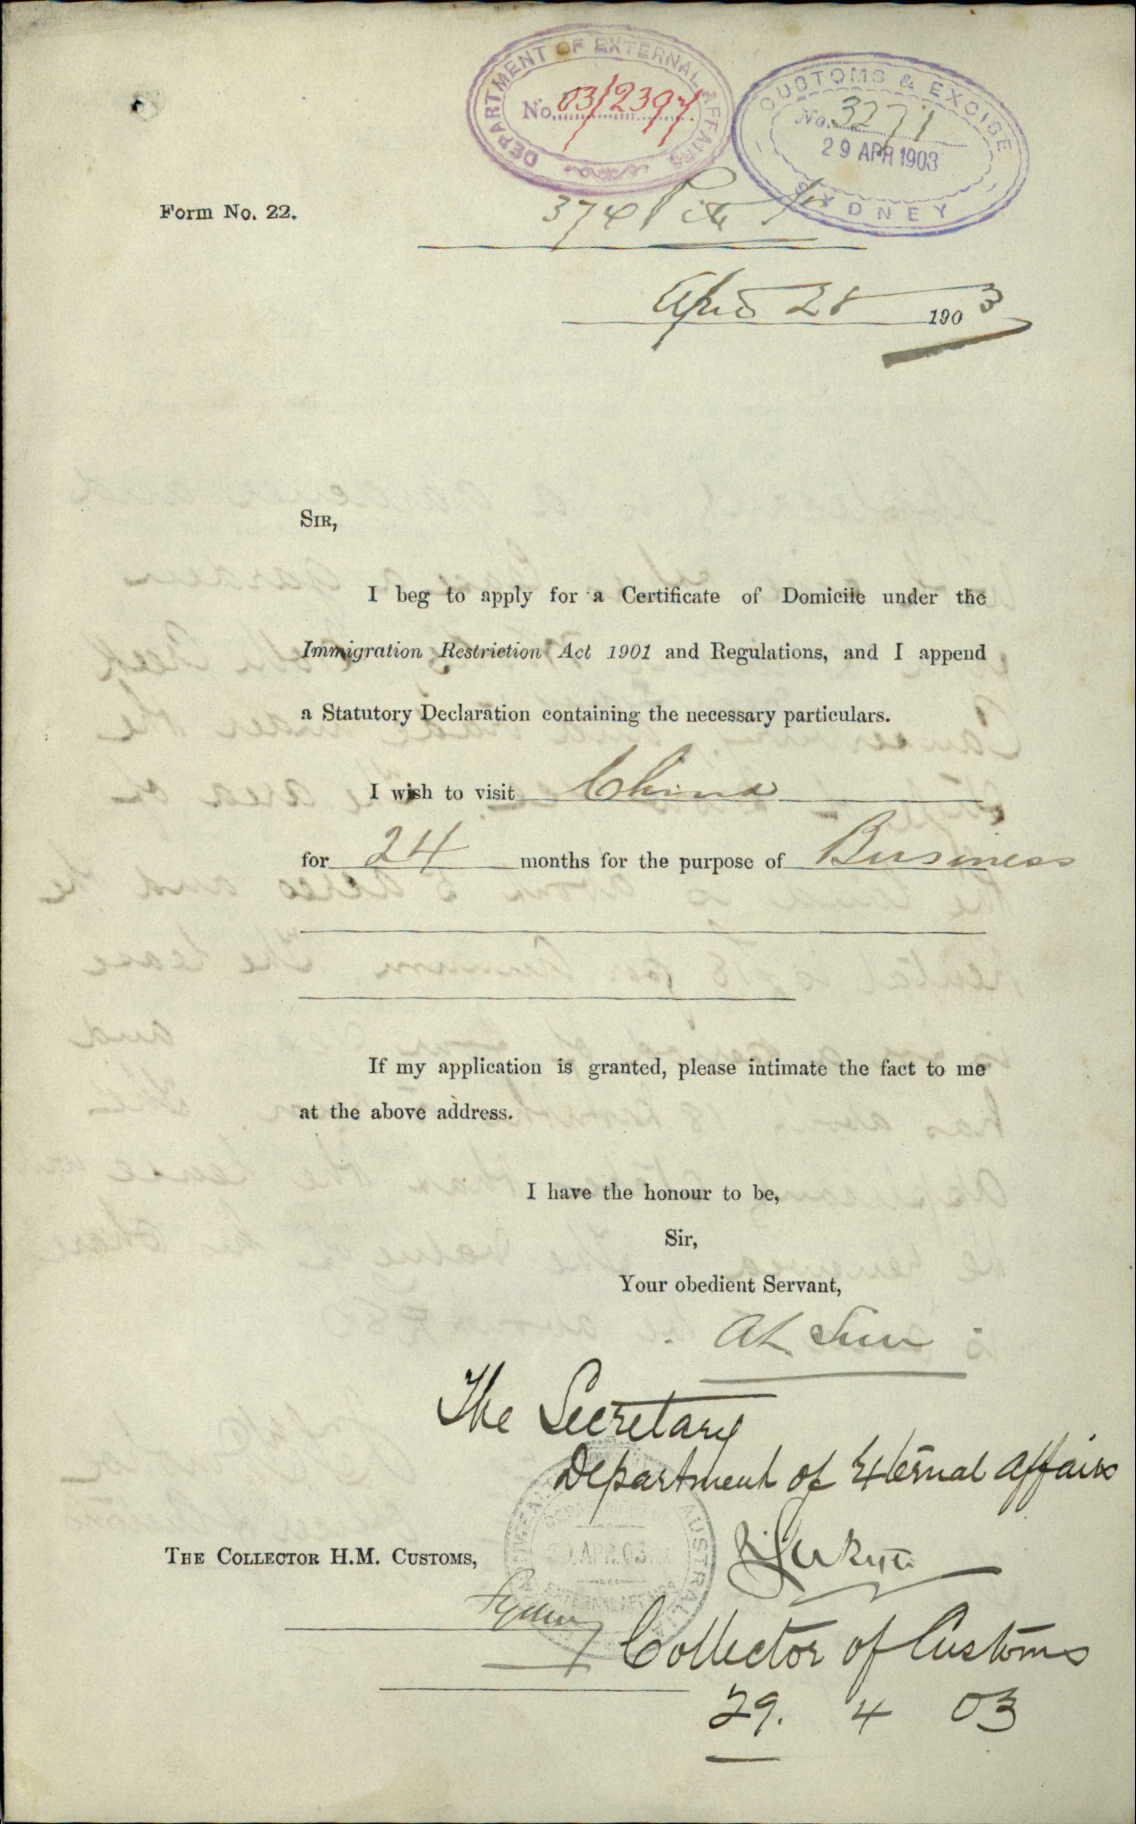 DEPARTMENT OF EXTERNAL AFFAIRS
No. 03/2397
CUSTOMS & EXCISE
No. 3271
29 APR 1903
SYDNEY
Form No. 22.
374 Pitt St
April 28 1903
SIR,
I beg to apply for a Certificate of Domicile under the
Immigration Restriction Act 1901 and Regulations, and I append
a Statutory Declaration containing the necessary particulars.
I wish to visit China
for 24 months for the purpose of Business
If my application is granted, please intimate the fact to me
at the above address.
I have the honour to be,
Sir,
Your obedient Servant,
Ah Sun
The Secretary
Department of External Affairs
AUSTRALIA
APR. 03
EXTERNAL AFFAIRS
THE COLLECTOR H.M. CUSTOMS,
Sydney
Collector of Customs
29. 4 03